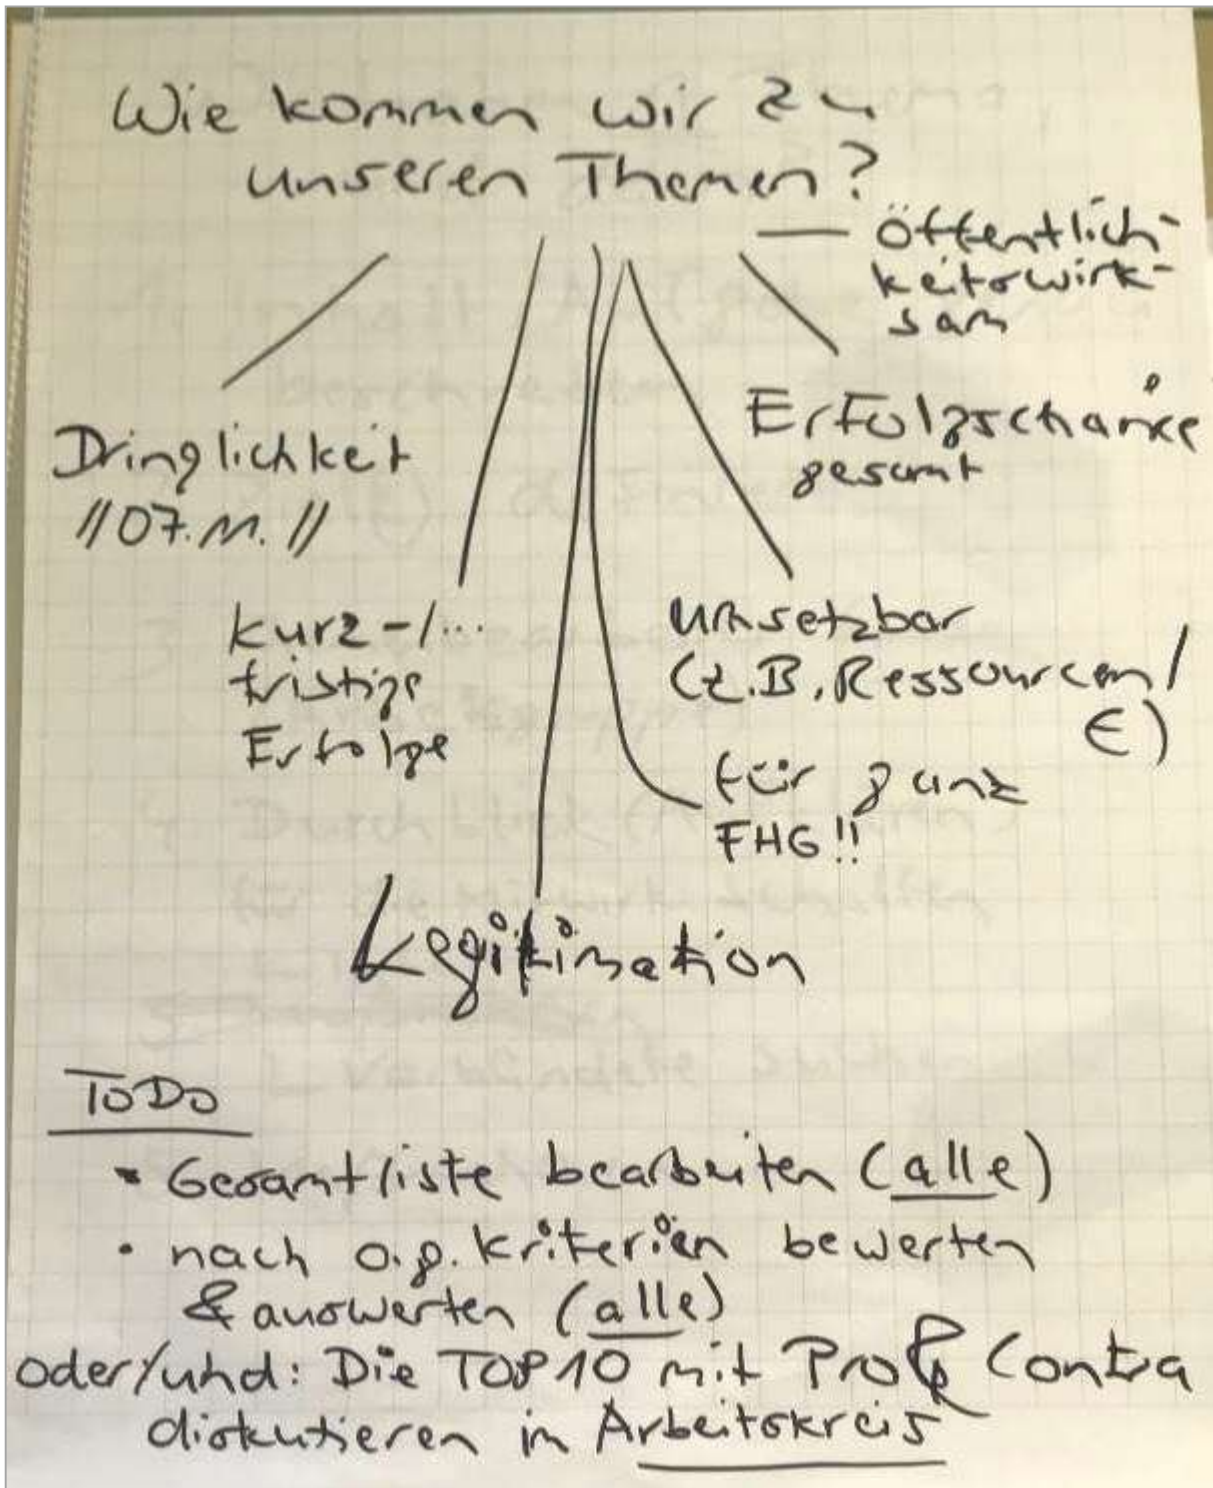 Wie kommen wir zu
unseren Themen?
Öffentlich-
keitswirk-
sam
Erfolgschance
gesamt
Dringlichkeit
//07.11.//
kurz-/...
fristige
Erfolge
umsetzbar
(z.B. Ressourcen/
€)
für ganz
FHG!!
Legitimation
ToDo
• Gesamtliste bearbeiten (alle)
• nach o.g. Kriterien bewerten
& auswerten (alle)
oder/und: Die TOP 10 mit Pro & Contra
diskutieren im Arbeitskreis